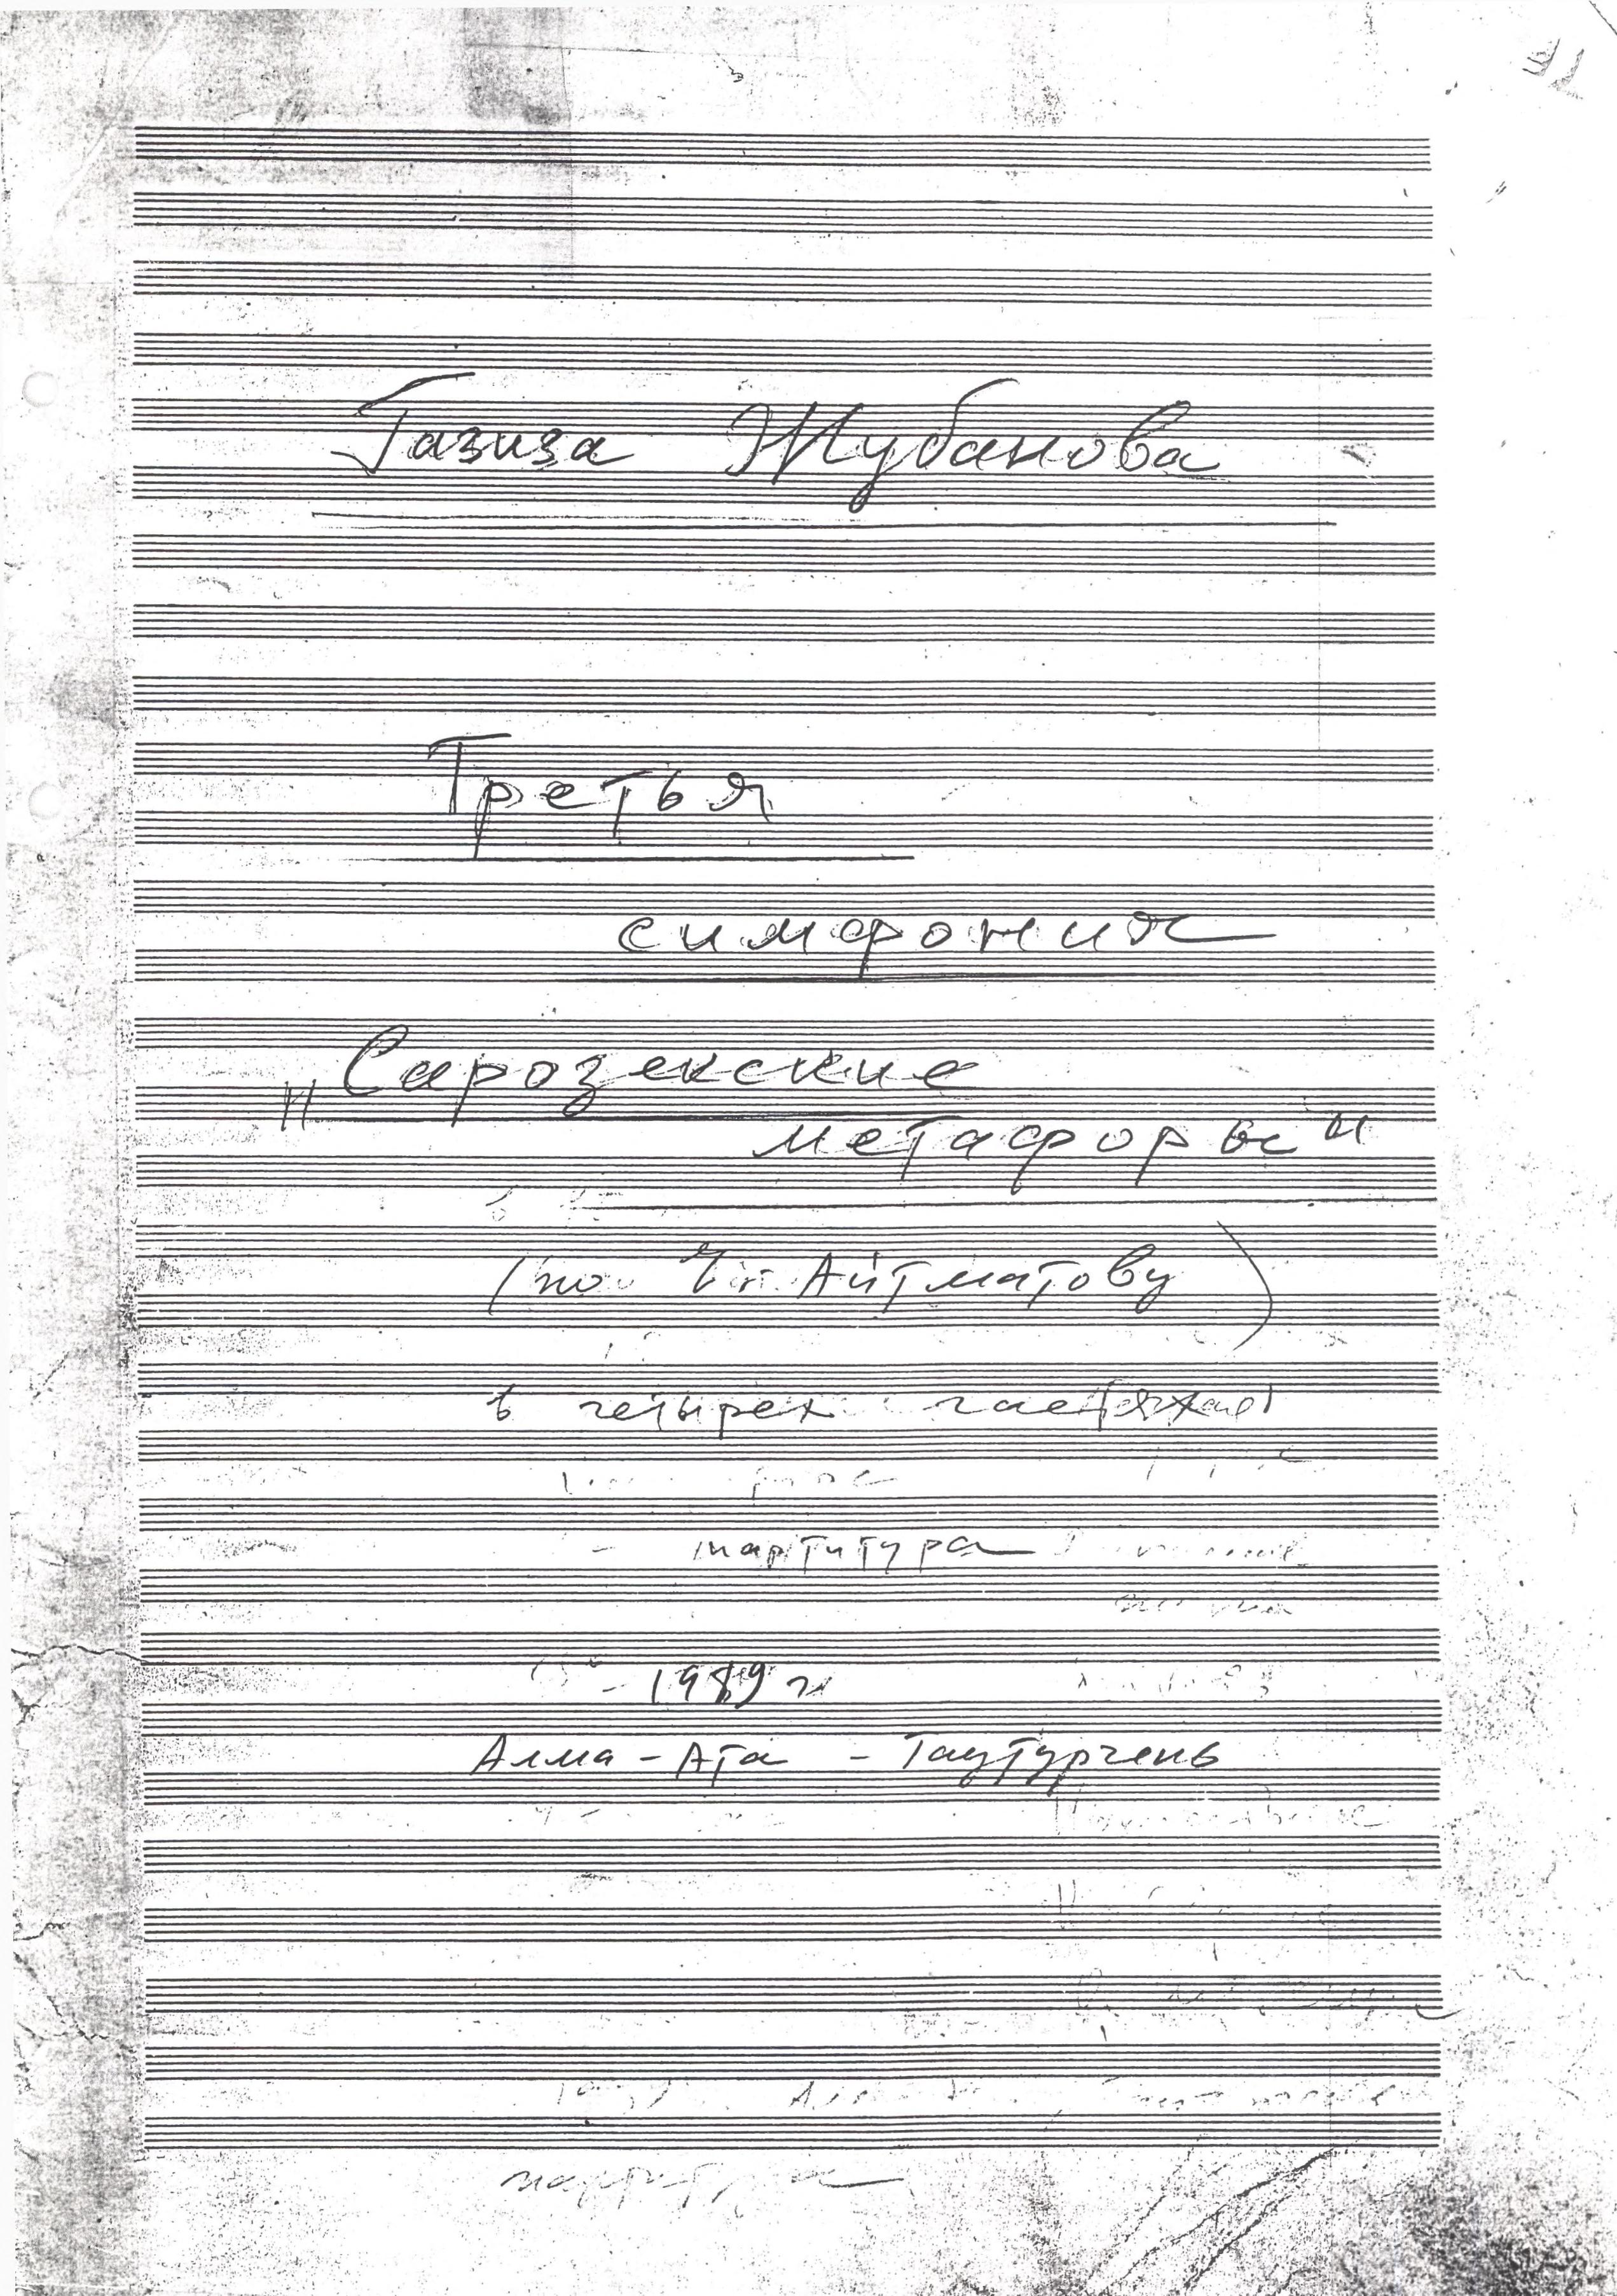 Газиза Жубанова
Третья
симфония
„Сарозекские
метафоры"
(по Ч. Айтматову)
в четырех частях
партитура
- 1989 г
Алма-Ата - Таутургень
партитура